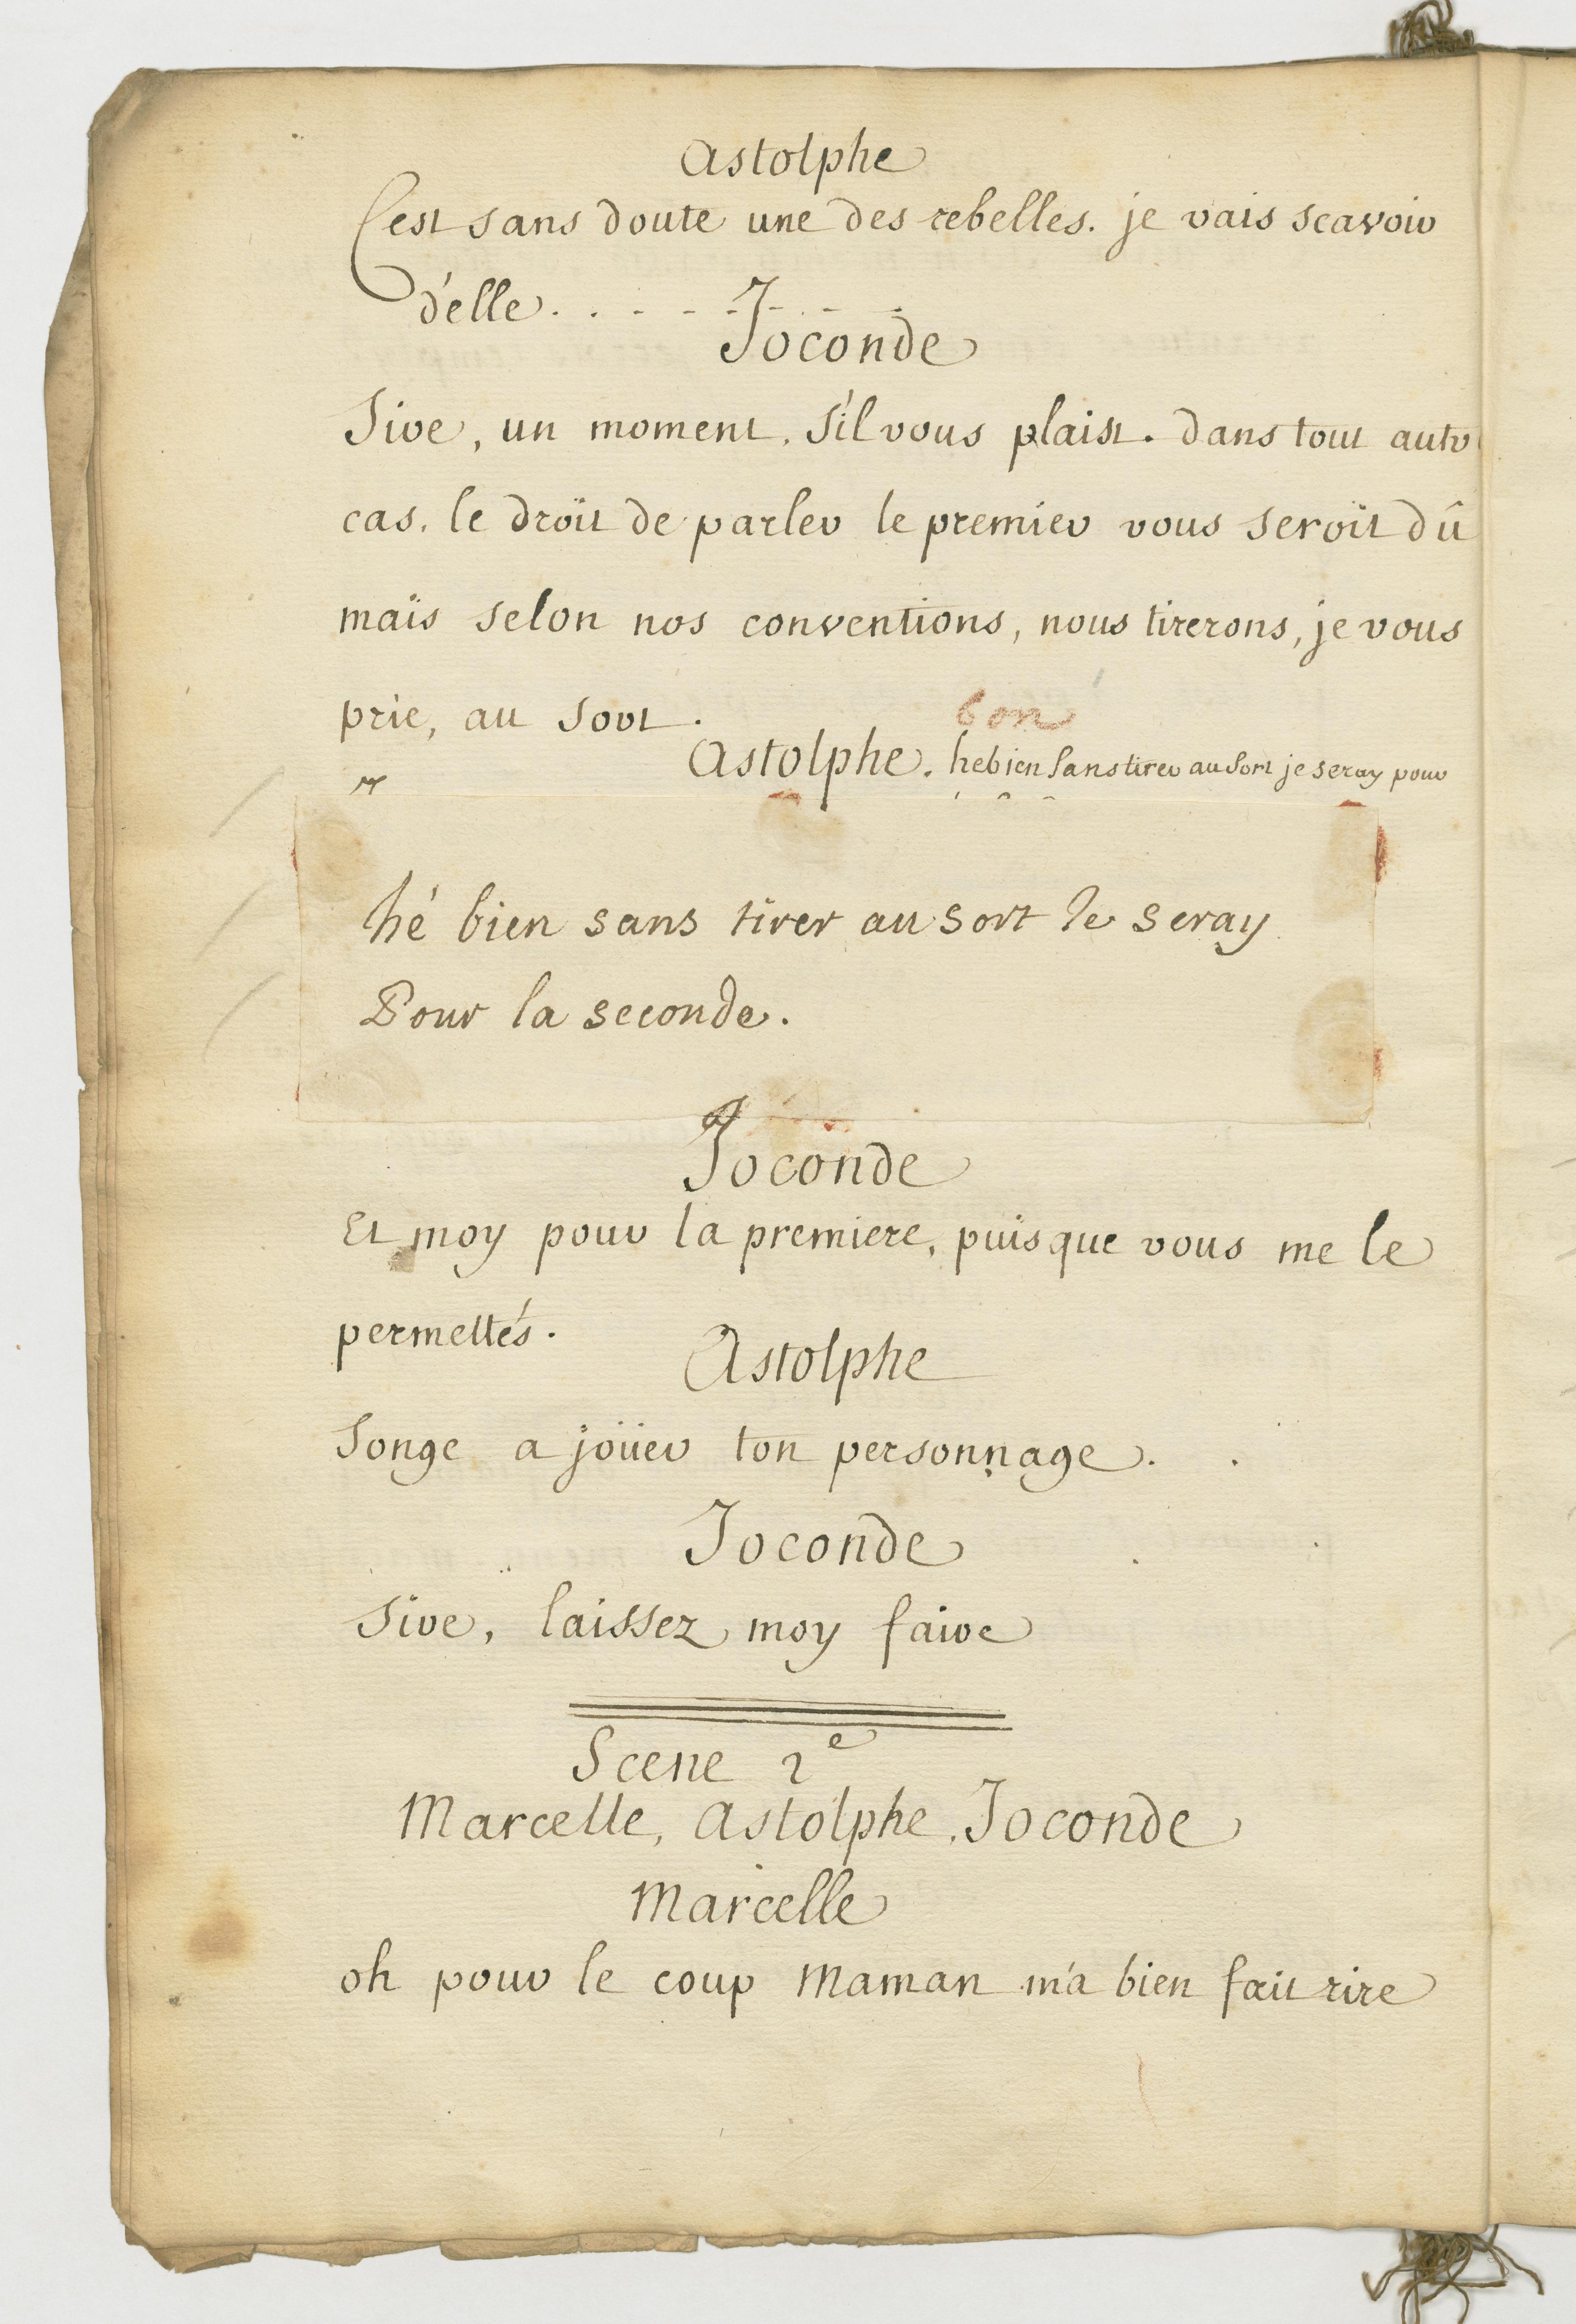 Astolphe
C'est sans doute une des rebelles. je vais scavoir
d'elle . . - - - - . - .
Joconde
Sire, un moment, s'il vous plaist. dans tout autr
cas, le droït de parler le premier vous seroït dû
maïs selon nos conventions, nous tirerons, je vous
prie, au sort.
bon
Astolphe. hebien sans tirer au sort je seray pour
hé bien sans tirer au sort Je seray
Pour la seconde.
Joconde
Et moy pour la premiere, puisque vous me le
permettés.
Astolphe
Songe a joüer ton personnage.
Joconde
Sire, laissez moy faire
Scene 2e
Marcelle, Astolphe, Joconde
Marcelle
oh pour le coup Maman m'a bien fait rire